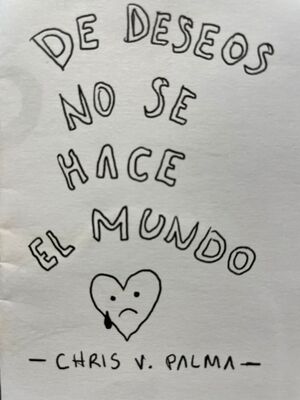 DE DESEOS
NO SE
HACE
EL MUNDO
- CHRIS V. PALMA -